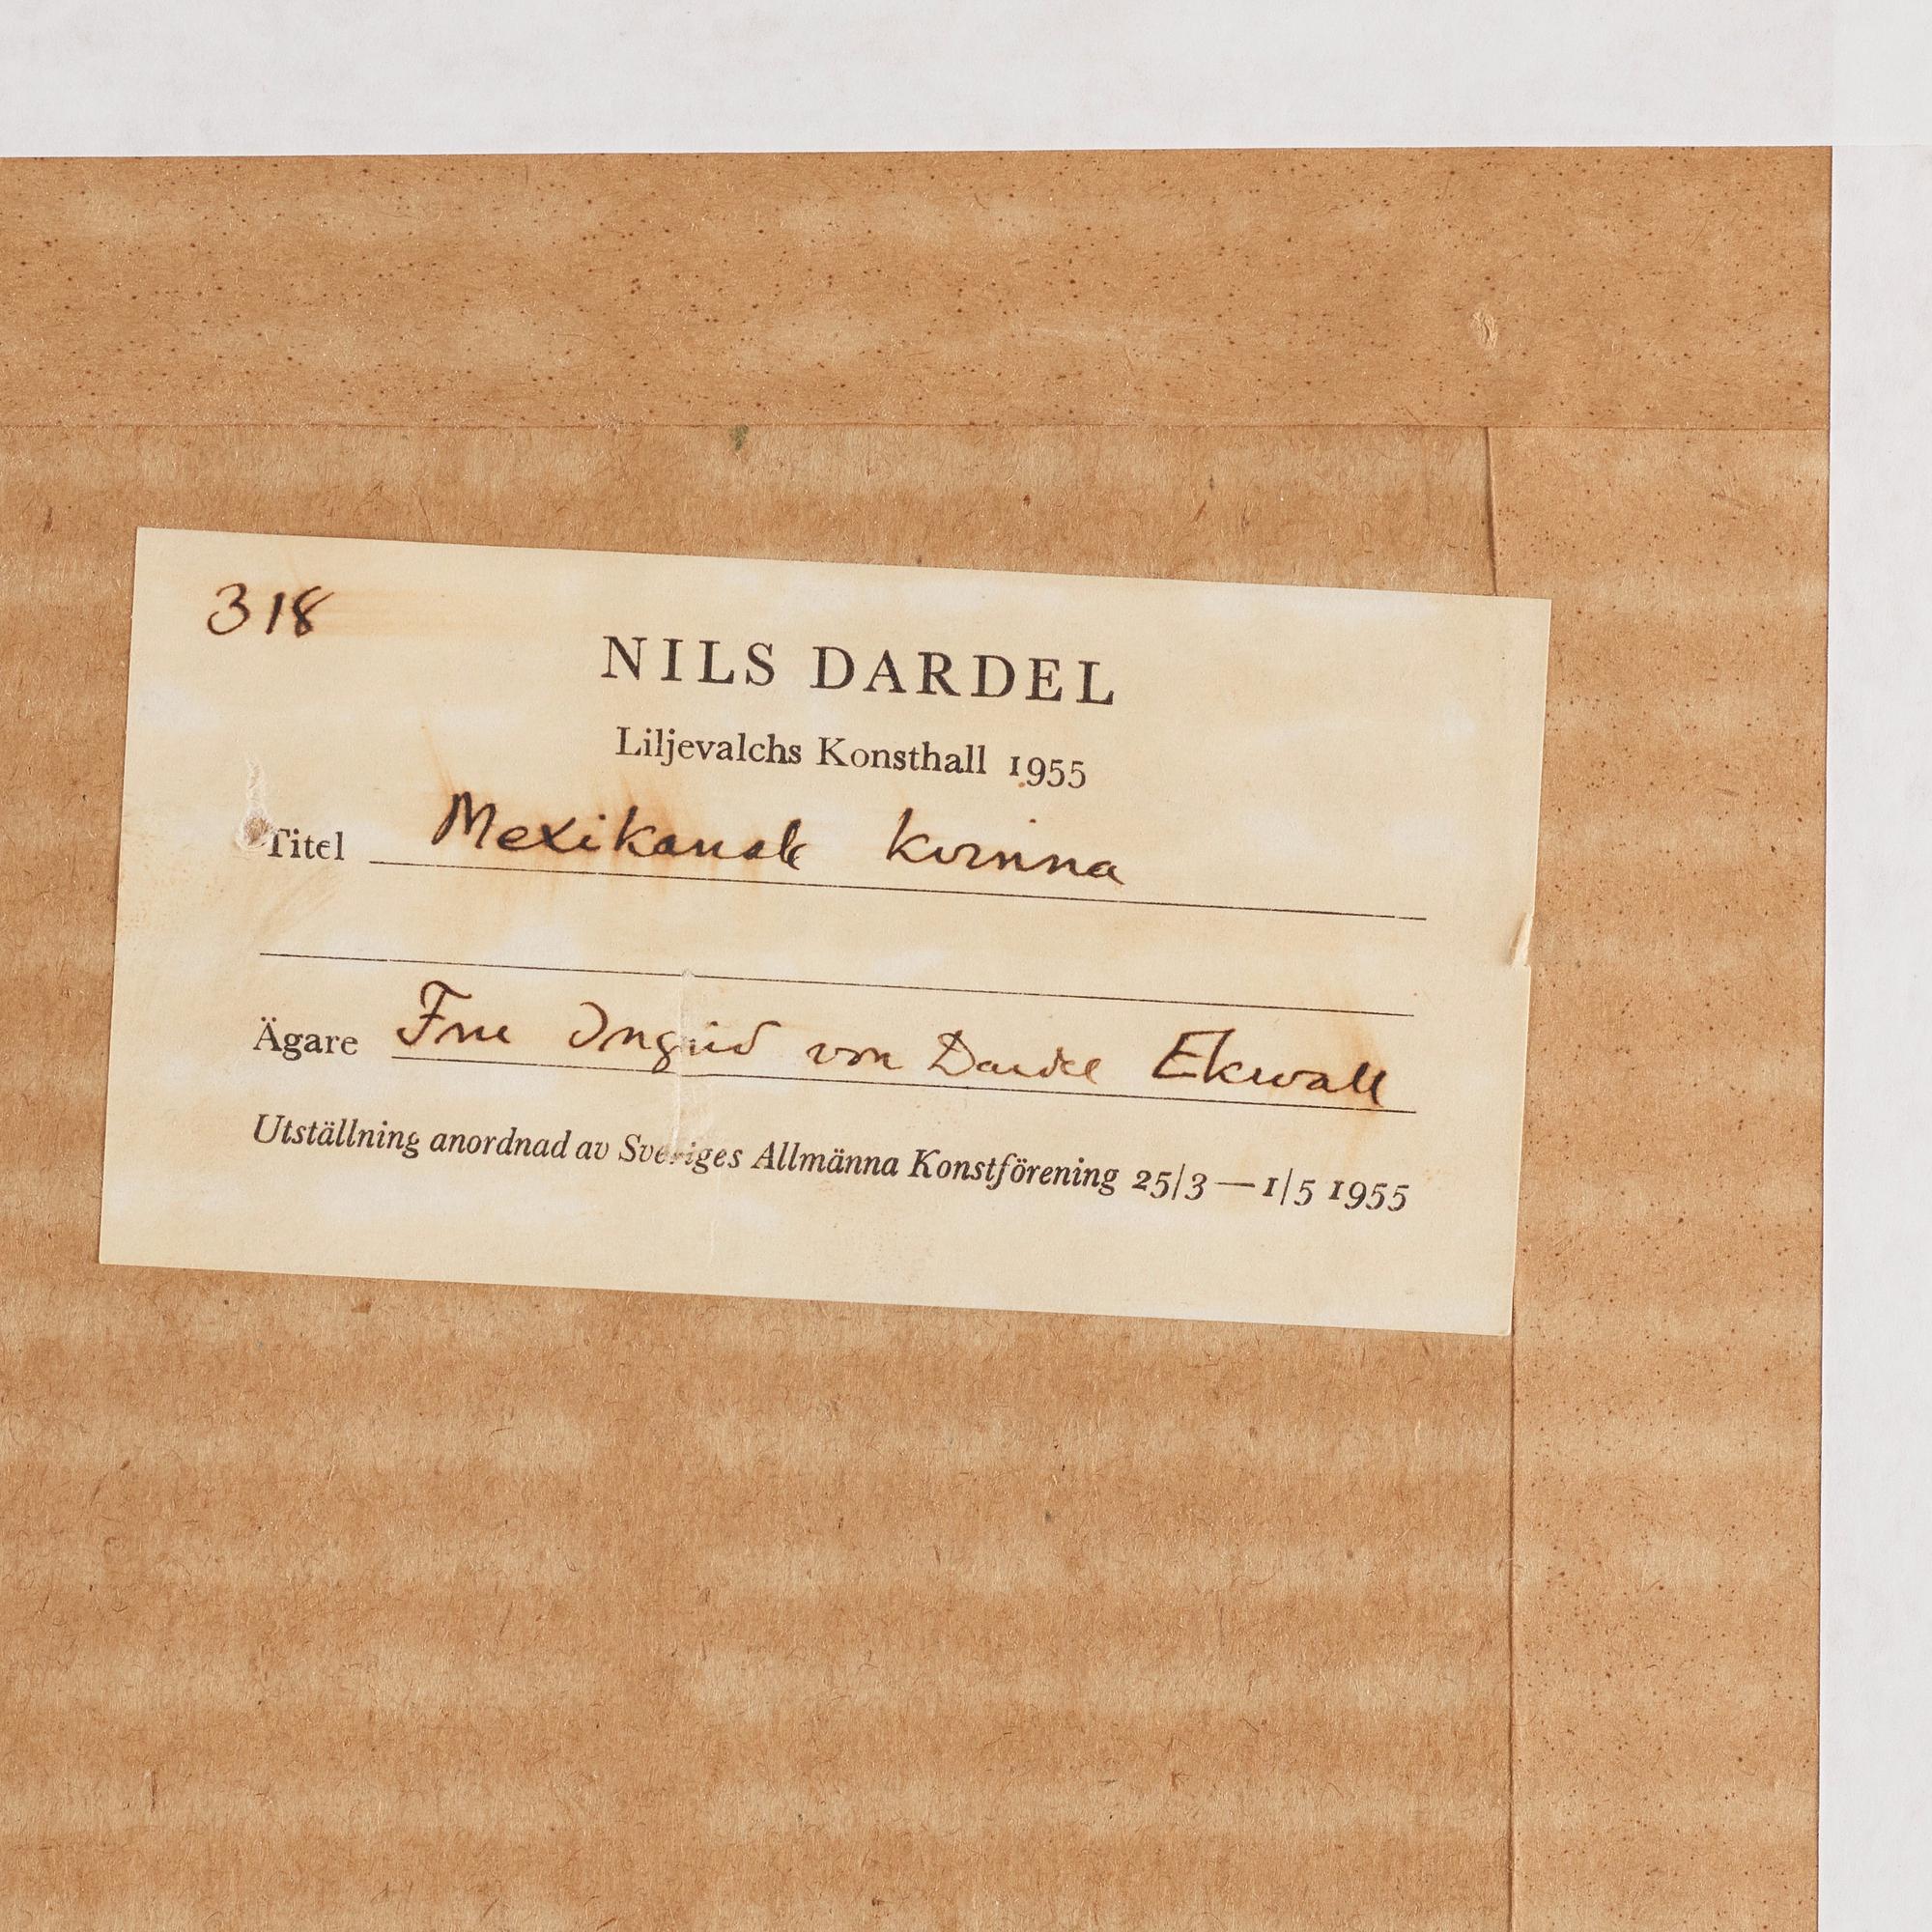 318
NILS DARDEL
Liljevalchs Konsthall 1955
Titel Mexikansk kvinna
Ägare Fru Ingrid von Dardel Ekwall
Utställning anordnad av Sveriges Allmänna Konstförening 25/3 — 1/5 1955